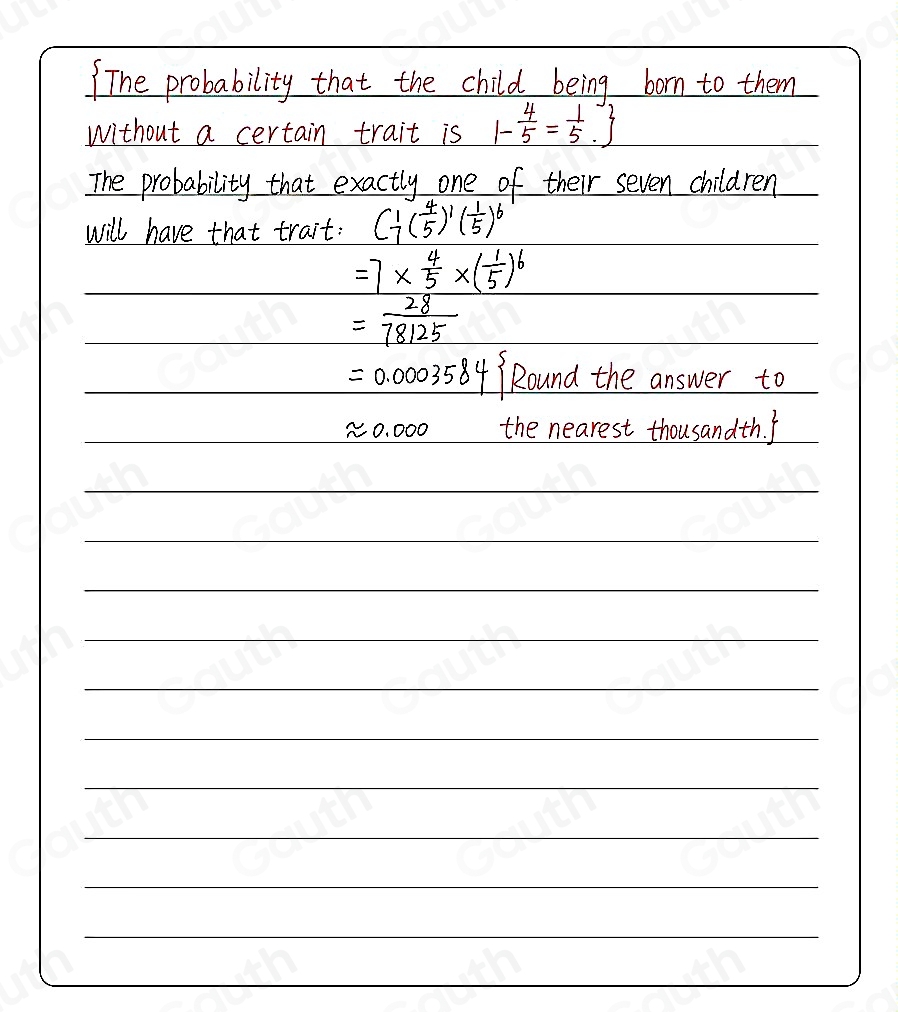 {The probability that the child being born to them
without a certain trait is 1-4/5=1/5.}
The probability that exactly one of their seven children
will have that trait: C₇¹(4/5)¹(1/5)⁶
=7×4/5×(1/5)⁶
=28/78125
=0.0003584 {Round the answer to
≈0.000 the nearest thousandth.}